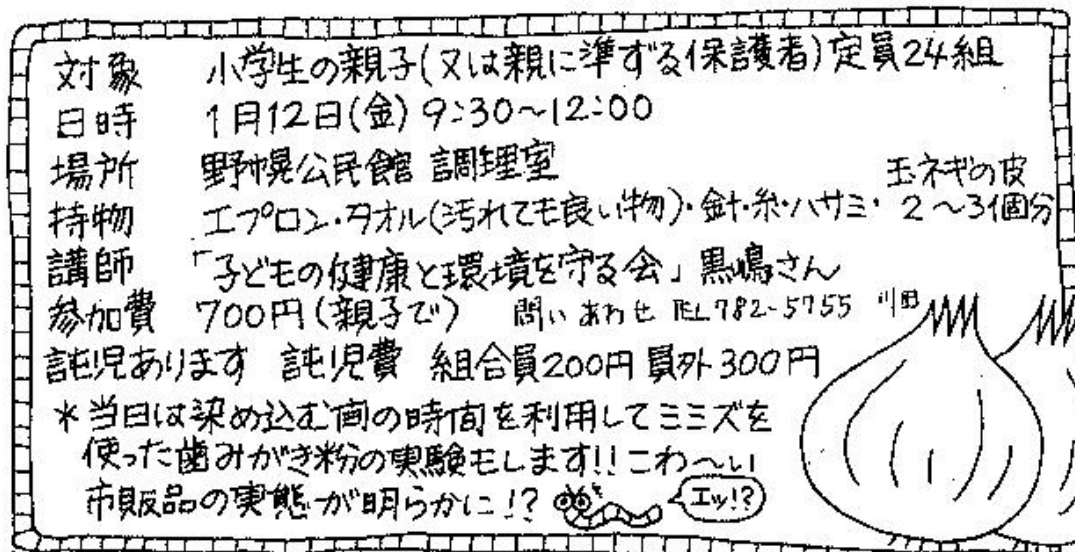 対象 小学生の親子(又は親に準ずる保護者)定員24組
日時 1月12日(金) 9:30～12:00
場所 野幌公民館 調理室
持物 エプロン・タオル(汚れても良い物)・針・糸・ハサミ・玉ネギの皮2～3個分
講師 「子どもの健康と環境を守る会」黒嶋さん
参加費 700円(親子で) 問いあわせ TEL782-5755 川田
託児あります 託児費 組合員200円 員外300円
*当日は染め込む間の時間を利用してミミズを
使った歯みがき粉の実験もします!!こわ～い
市販品の実態が明らかに!?
エッ!?